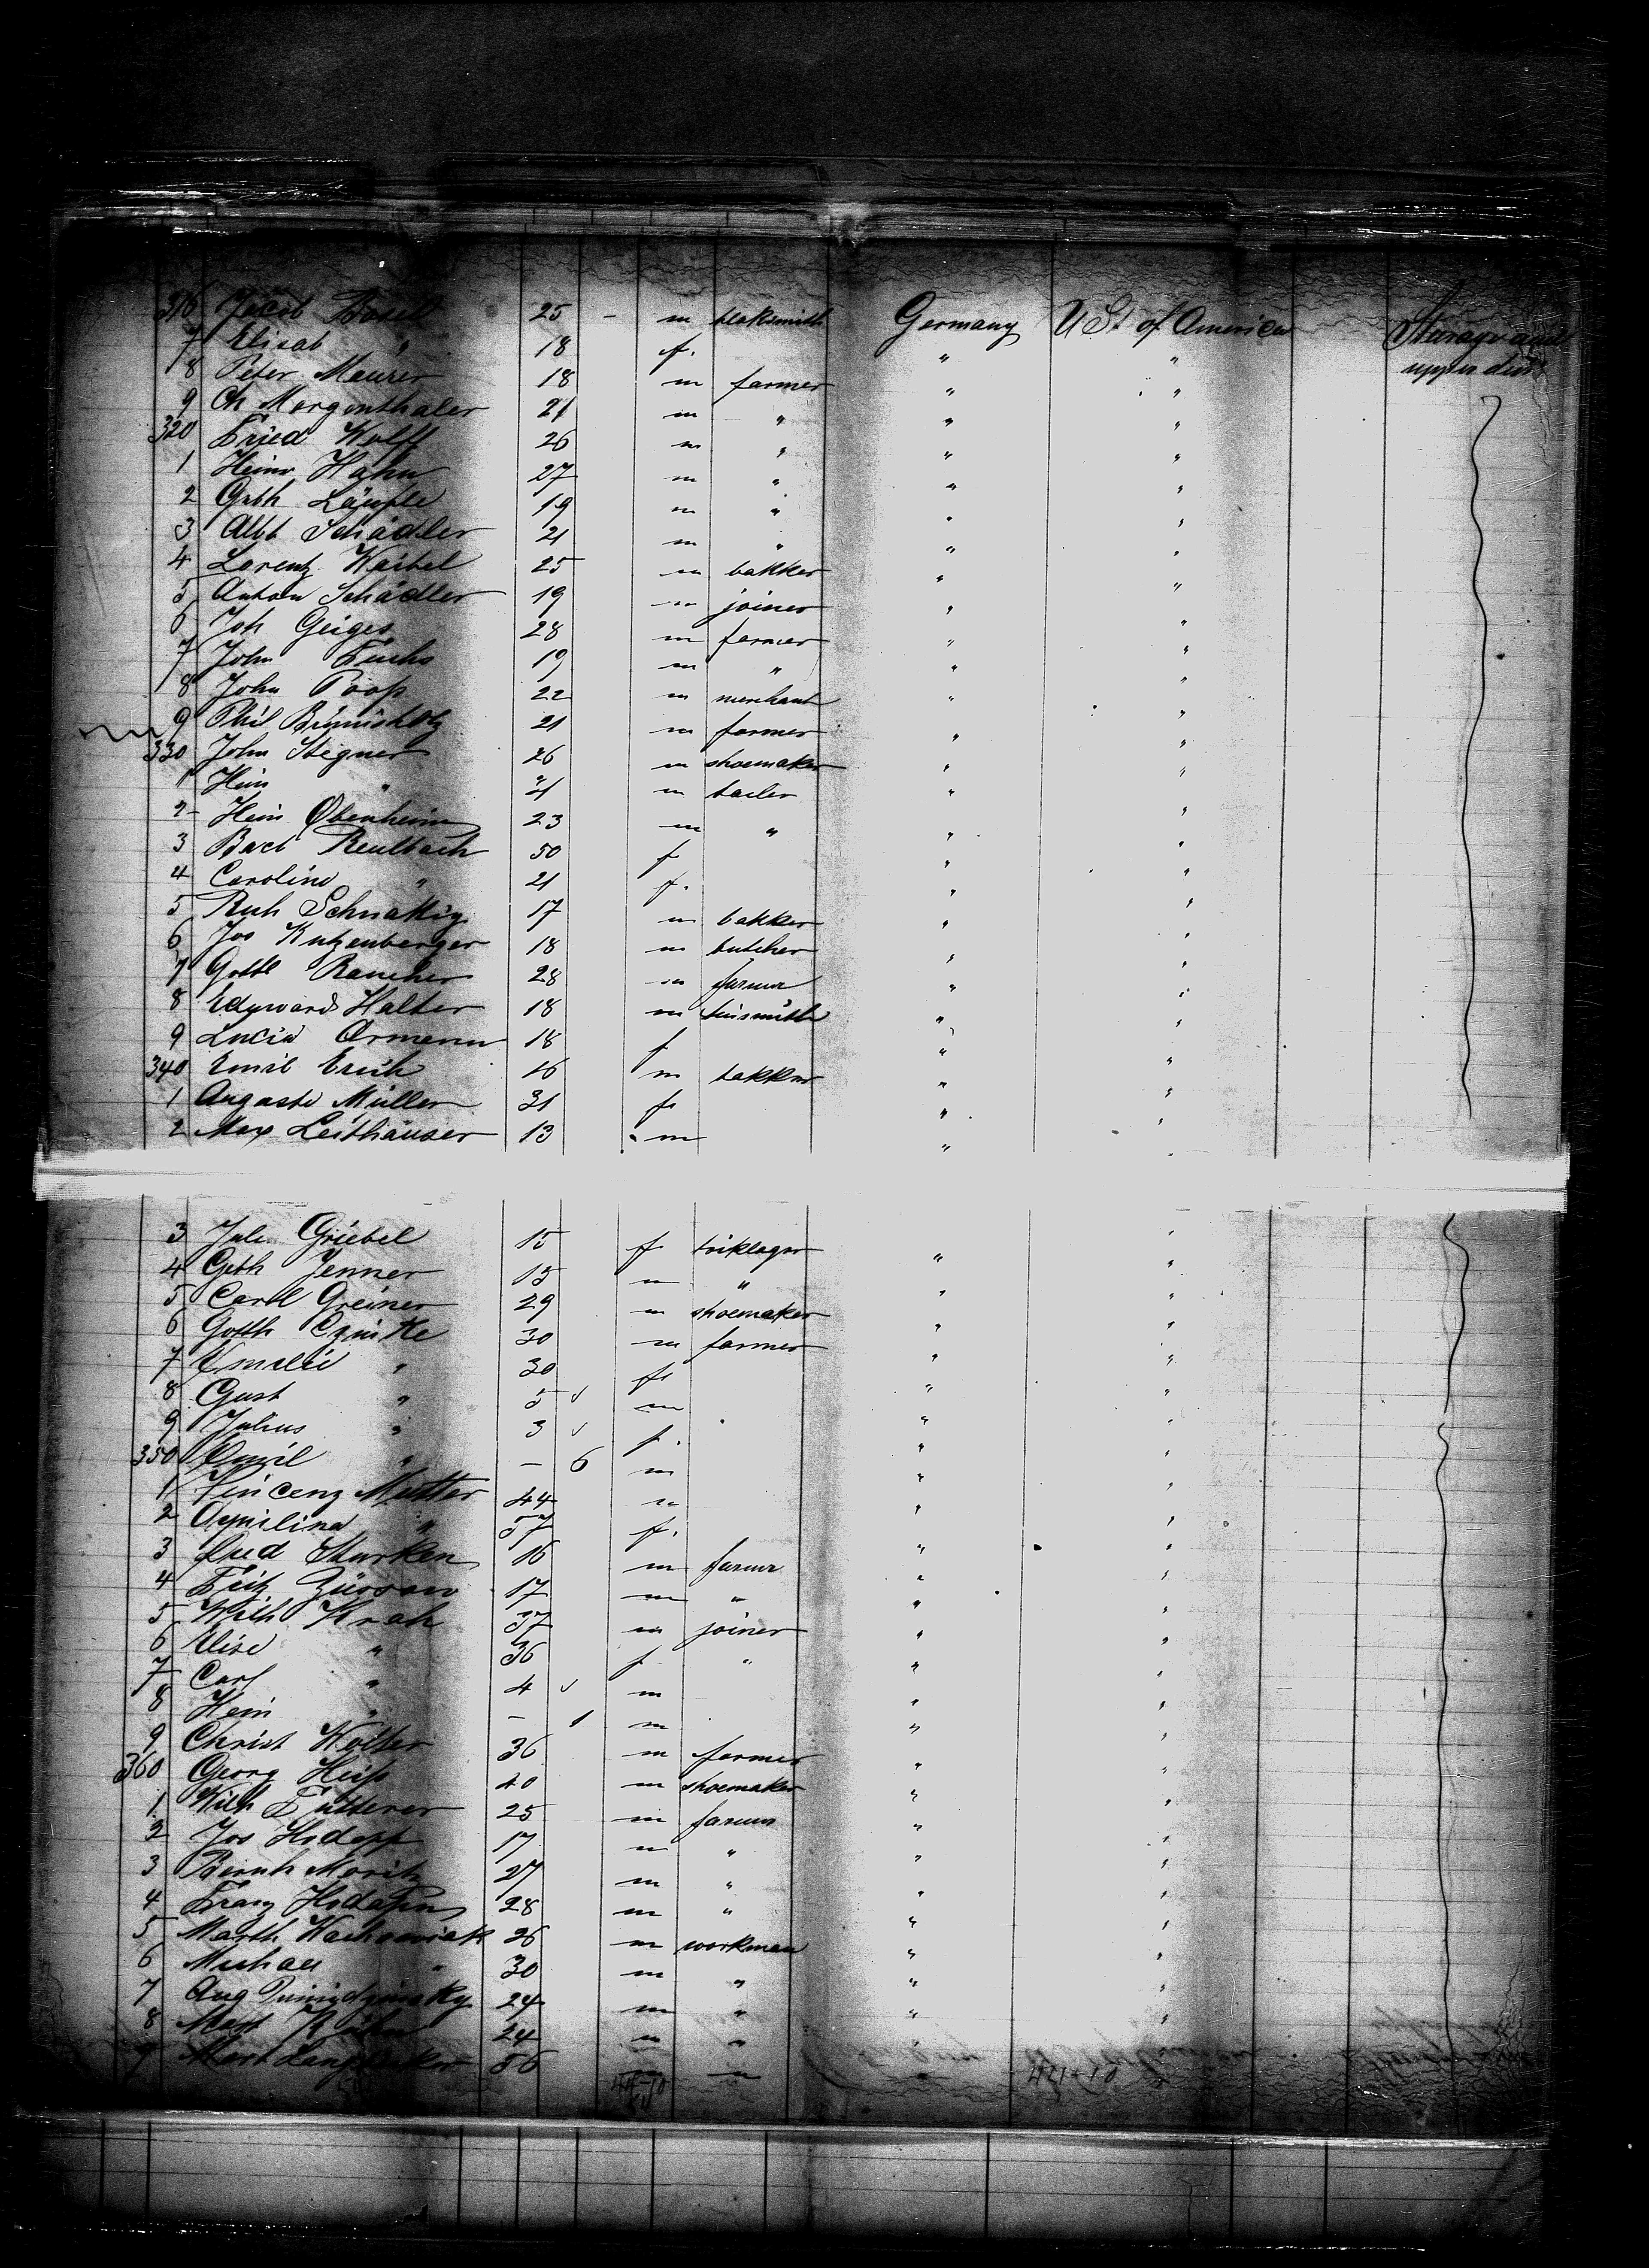 316 Jacob 25 - m blaksmith Germany U St. of America Sterage and
7 Elisab " 18 f. " " upper deck
8 Peter Maurer 18 m farmer " "
9 Ch Morgenthaler 21 m " " "
320 Fried Wolff 26 m " " "
1 Heinr Hahn 27 m " " "
2 Gtth Läupple 19 m " " "
3 Albt Schädler 21 m " " "
4 Lorentz Waibel 25 m bakker " "
5 Anton Schädler 19 m joiner " "
6 Joh Geiges 28 m farmer " "
7 John Fuchs 19 m " " "
8 John Poop 22 m merchant " "
9 Phil 21 m farmer " "
330 John Stegner 26 m shoemaker " "
1 Hein " 21 m tailer " "
2 Hein Obenheim 23 m " " "
3 Barb Reulbach 50 f " "
4 Caroline " 21 f. " "
5 Rich 17 m bakker " "
6 Jos Kutzenberger 18 m butcher " "
7 Gottl Raucher 28 m farmer " "
8 Edgward Halter 18 m tinsmith " "
9 Lucia Ormenn 18 f " "
340 Emil Erich 16 m bakker " "
1 Auguste Müller 31 f " "
2 Max Leithäuser 13 m " "
3 Jule Griebel 15 f " "
4 Gtth Jenner 15 m " " "
5 Carl Greiner 29 m shoemaker " "
6 Gotth 30 m farmer " "
7 Emalie " 30 f " "
8 Gust " 5 m " "
9 Julius " 3 f. " "
350 Emil " - 6 m " "
1 Vincenz Mutter 44 m " "
2 " 57 f. " "
3 Died Sturken 16 m farmer " "
4 Fritz Züssow 17 m " " "
5 Wilh Krah 37 m joiner " "
6 Elise " 36 f " " "
7 Carl " 4 m " "
8 Hein " - 1 m " "
9 Christ Wolter 36 m farmer " "
360 Georg Heip 40 m shoemaker " "
1 Wilh Futterer 25 m farmer " "
2 Jos Hodapp 17 m " " "
3 Bernh Moritz 27 m " " "
4 Franz Hodapp 28 m " " "
5 Marth Wachowiak 26 m workman " "
6 Michael " 30 m " " "
7 Aug 24 m " " "
8 24 m " " "
9 56